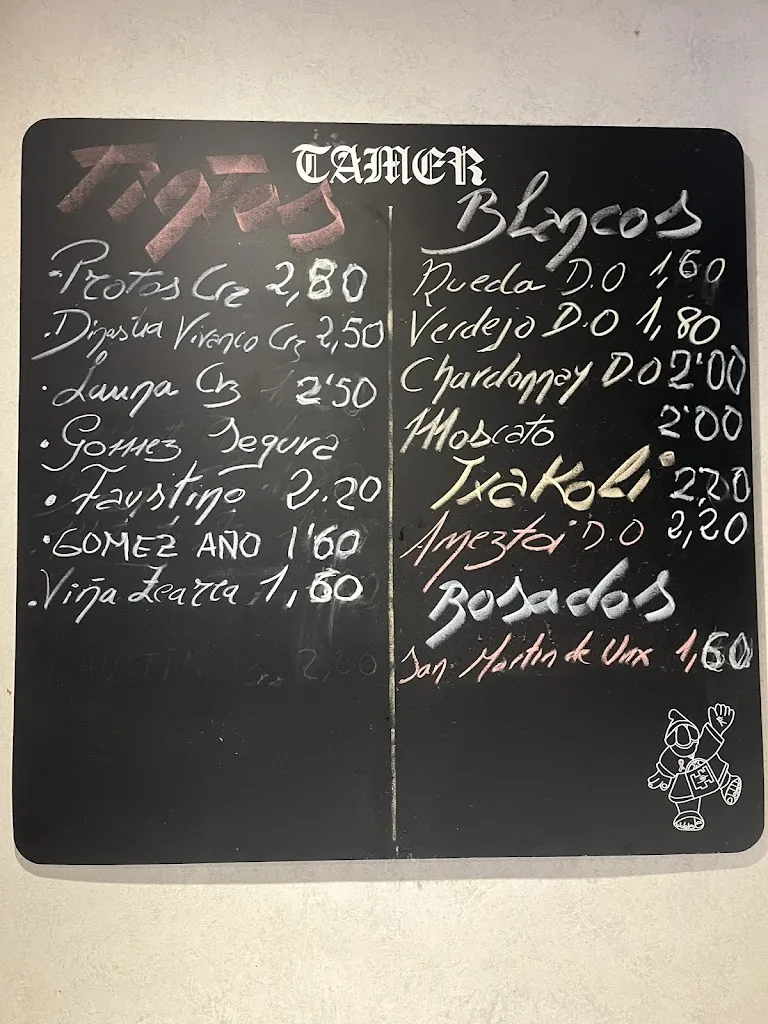 TAMER
Tintos
Protos Crz 2,80
Dinastia Vivanco Crz 2,50
Launa Crz 2'50
Gomez Segura
Faustino 2.20
GOMEZ AÑO 1'60
Viña Zearra 1,60
2,00
Blancos
Rueda D.O 1,60
Verdejo D.O 1,80
Chardonnay D.O 2'00
Moscato 2'00
Txakoli 2,20
Ameztoi D.O 2,20
Rosados
San Martin de Unx 1,60